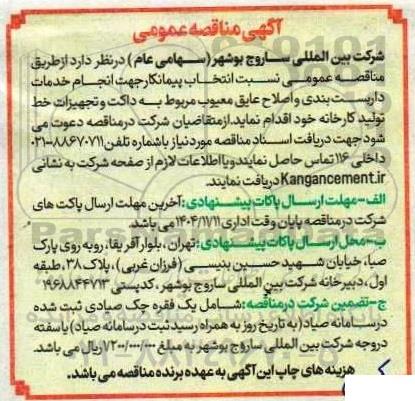 آگهی مناقصه عمومی
شرکت بین المللی ساروج بوشهر (سهامی عام) در نظر دارد از طریق
مناقصه عمومی نسبت انتخاب پیمانکار جهت انجام خدمات
داربست بندی و اصلاح عایق معیوب مربوط به داکت و تجهیزات خط
تولید کارخانه خود اقدام نماید. از متقاضیان شرکت در مناقصه دعوت می
شود جهت دریافت اسناد مناقصه مورد نیاز با شماره تلفن ۸۸۶۷۰۷۱۱-۰۲۱
داخلی ۱۱۶ تماس حاصل نمایند و یا اطلاعات لازم از صفحه شرکت به نشانی
Kangancement.ir دریافت نمایند.
الف-مهلت ارسال پاکات پیشنهادی: آخرین مهلت ارسال پاکت های
شرکت در مناقصه پایان وقت اداری ۱۴۰۴/۷/۱۱ می باشد.
ب-محل ارسال پاکات پیشنهادی: تهران، بلوار آفریقا، روبه روی پارک
صبا، خیابان شهید حسین بنیسی (فرزان غربی)، پلاک ۳۸، طبقه
اول، دبیرخانه شرکت بین المللی ساروج بوشهر، کدپستی ۱۹۶۸۸۴۴۷۱۳
ج-تضمین شرکت در مناقصه: شامل یک فقره چک صیادی ثبت شده
در سامانه صیاد (به تاریخ روز به همراه رسید ثبت در سامانه صیاد) یا سفته
در وجه شرکت بین المللی ساروج بوشهر به مبلغ ۷/۲۰۰/۰۰۰/۰۰۰ ریال می باشد.
هزینه های چاپ این آگهی به عهده برنده مناقصه می باشد.